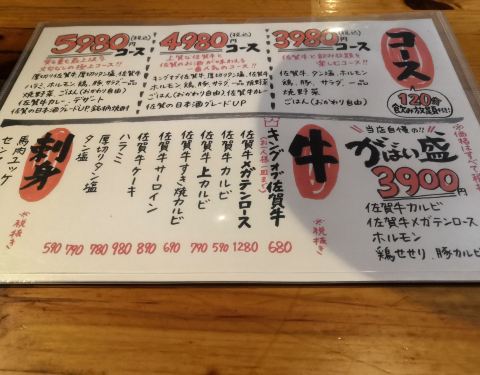 コース
120分
飲み放題付!!
3980円(税込)
コース
佐賀牛と飲み放題を
楽しむコース!!
佐賀牛、タン塩、ホルモン
鶏、豚、サラダ、一品
焼野菜
ごはん(おかわり自由)
4980円(税込)
コース
上質な佐賀牛と
佐賀のお酒が味わえる
一番人気のコース!!
キングオブ佐賀牛、厚切りタン塩、佐賀牛
ホルモン、鶏、豚、サラダ、一品、焼野菜
ごはん(おかわり自由)
佐賀の日本酒グレードUP
5980円(税込)
コース
厚切り佐賀牛、厚切りタン塩、佐賀牛
ハラミ、ホルモン、鶏、豚、サラダ、一品
焼野菜、ごはん(おかわり自由)
佐賀牛カレー、デザート
佐賀の日本酒グレードUP
※価格はすべて税抜
当店自慢の!!
がばい盛
3900円
佐賀牛カルビ
佐賀牛メガテンロース
ホルモン
鶏せせり、豚カルビ
牛
※税抜き
キングオブ佐賀牛 680
佐賀牛メガテンロース 1280
佐賀牛カルビ 590
佐賀牛上カルビ 790
佐賀牛すき焼カルビ 690
佐賀牛サーロイン 890
ハラミケーキ 980
ハラミ 980
厚切りタン塩 790
タン塩 590
刺身
※税抜き
馬肉ユッケ